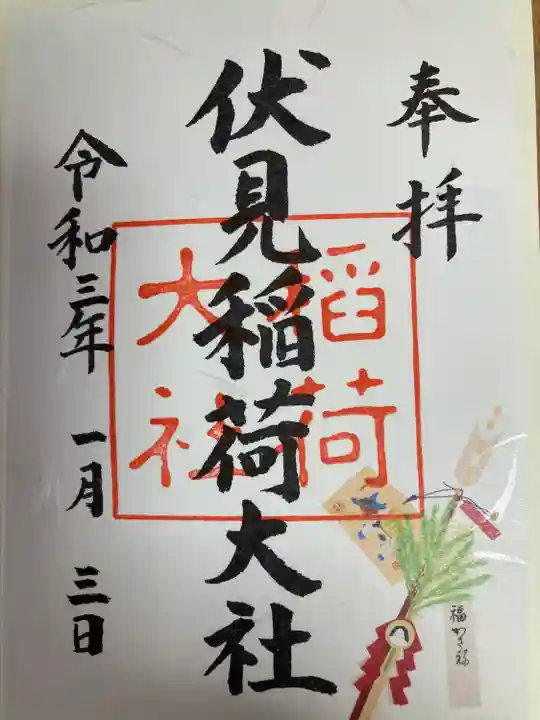 奉拝
伏見稲荷大社
稲荷
大社
令和三年 一月 三日